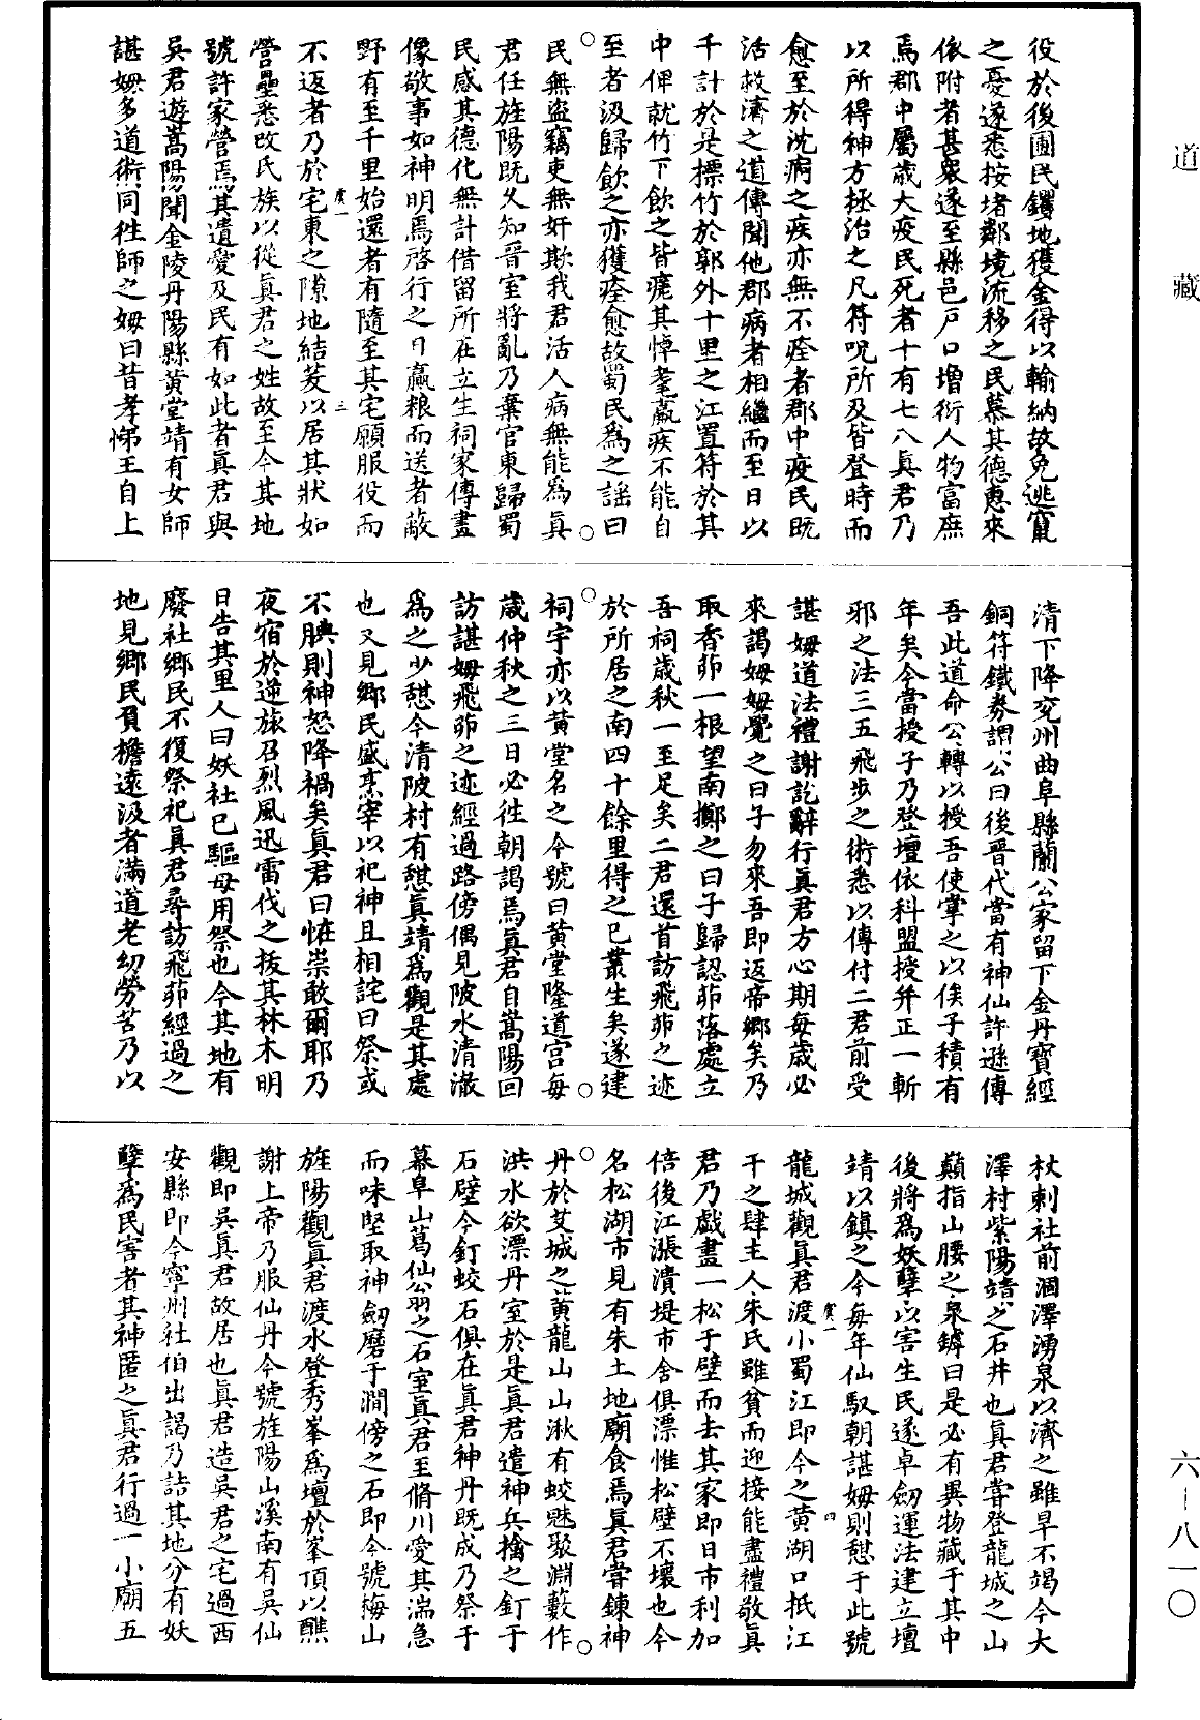 道藏
六—八一〇
役於後圃民钁地獲金得以輸納故免逃竄
之憂遂悉按堵鄰境流移之民慕其德惠來
依附者甚衆遂至縣邑戶口增衍人物富庶
焉郡中屬歲大疫民死者十有七八眞君乃
以所得神方拯治之凡符呪所及皆登時而
愈至於沈痾之疾亦無不痊者郡中疫民旣
活救濟之道傳聞他郡病者相繼而至日以
千計於是標竹於郭外十里之江置符於其
中俾就竹下飲之皆瘥其悼耄羸疾不能自
至者汲歸飲之亦獲痊愈故蜀民爲之謡曰
民無盜竊吏無奸欺我君活人病無能爲眞
君任旌陽旣久知晉室將亂乃棄官東歸蜀
民感其德化無計借留所在立生祠家傳畫
像敬事如神明焉啓行之日羸粮而送者蔽
野有至千里始還者有隨至其宅願服役而
虞一 三
不返者乃於宅東之隙地結茇以居其狀如
營壘悉改氏族以從眞君之姓故至今其地
號許家營焉其遺愛及民有如此者眞君與
吳君遊嵩陽聞金陵丹陽縣黃堂靖有女師
諶姆多道術同往師之姆曰昔孝悌王自上
清下降兗州曲阜縣蘭公家留下金丹寶經
銅符鐵券謂公曰後晉代當有神仙許遜傳
吾此道命公轉以授吾使掌之以俟子積有
年矣今當授子乃登壇依科盟授并正一斬
邪之法三五飛步之術悉以傳付二君前受
諶姆道法禮謝訖辭行眞君方心期每歲必
來謁姆姆覺之曰子勿來吾即返帝鄉矣乃
取香茆一根望南擲之曰子歸認茆落處立
吾祠歲秋一至足矣二君還首訪飛茆之迹
於所居之南四十餘里得之已叢生矣遂建
祠宇亦以黃堂名之今號曰黃堂隆道宫每
歲仲秋之三日必往朝謁焉眞君自嵩陽回
訪諶姆飛茆之迹經過路傍偶見陂水清澈
爲之少憇今清陂村有憇眞靖爲觀是其處
也又見鄉民盛烹宰以祀神且相詫曰祭或
不腆則神怒降禍矣眞君曰恠祟敢爾耶乃
夜宿於逆旅召烈風迅雷伐之拔其林木明
日告其里人曰妖社已驅毋用祭也今其地有
廢社鄉民不復祭祀眞君尋訪飛茆經過之
地見鄉民負檐遠汲者滿道老幼勞苦乃以
杖刺社前涸澤湧泉以濟之雖旱不竭今大
澤村紫陽靖之石井也眞君嘗登龍城之山
巔指山腰之泉罅曰是必有異物藏于其中
後將爲妖孽以害生民遂卓劒運法建立壇
靖以鎮之今每年仙馭朝諶姆則憇于此號
虞一 四
龍城觀眞君渡小蜀江即今之黃湖口抵江
干之肆主人朱氏雖貧而迎接能盡禮敬眞
君乃戲畫一松于壁而去其家即日市利加
倍後江漲潰堤市舍俱漂惟松壁不壞也今
名松湖市見有朱土地廟食焉眞君嘗鍊神
丹於艾城之黃龍山山湫有蛟魅聚淵藪作
洪水欲漂丹室於是眞君遣神兵擒之釘于
石壁今釘蛟石俱在眞君神丹旣成乃祭于
幕阜山葛仙翁之石室眞君至脩川愛其湍急
而味堅取神劒磨于澗傍之石即今號梅山
旌陽觀眞君渡水登秀峯爲壇於峯頂以醮
謝上帝乃服仙丹今號旌陽山溪南有吳仙
觀即吳眞君故居也眞君造吳君之宅過西
安縣即今寧州社伯出謁乃詰其地分有妖
孽爲民害者其神匿之眞君行過一小廟五